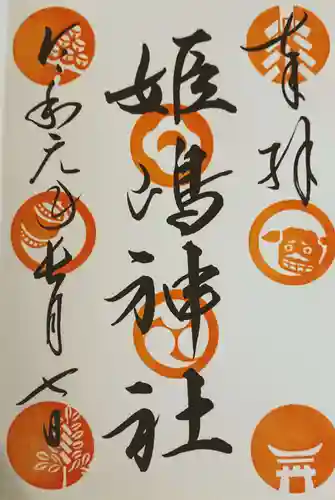 奉拝
姫嶋神社
令和元年七月七日